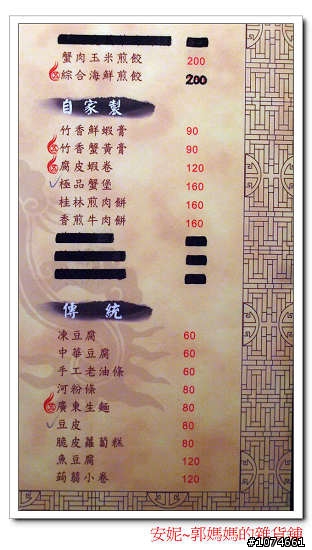 蟹肉玉米煎餃 200
綜合海鮮煎餃 200
自家製
竹香鮮蝦膏 90
竹香蟹黃膏 90
腐皮蝦卷 120
極品蟹堡 160
桂林煎肉餅 160
香煎牛肉餅 160
傳統
凍豆腐 60
中華豆腐 60
手工老油條 60
河粉條 80
廣東生麵 80
豆皮 80
脆皮蘿蔔糕 80
魚豆腐 120
蒟蒻小卷 120
安妮~郭媽媽的雜貨鋪
#1074661